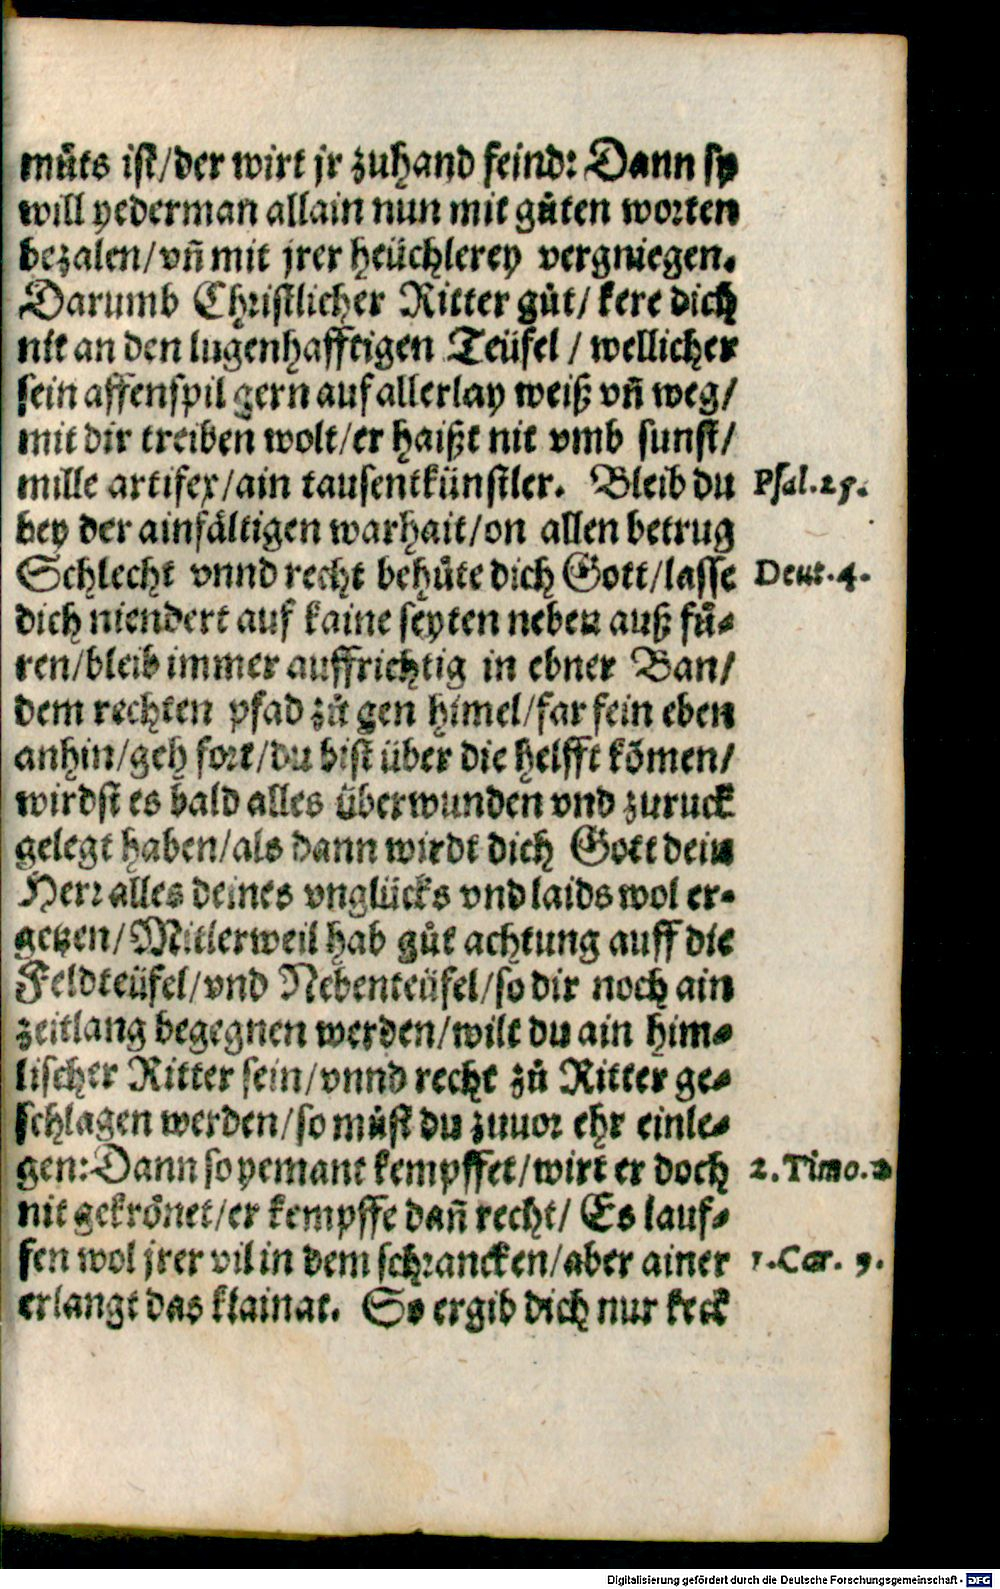 muͤts ist/der wirt jr zuhand feind: Dann sy
will yederman allain nun mit guͤten worten
bezalen/vñ mit jrer heüchlerey vergniegen.
Darumb Christlicher Ritter guͤt/kere dich
nit an den lugenhafftigen Teüfel / wellicher
sein affenspil gern auf allerlay weiß vñ weg/
mit dir treiben wolt/er haißt nit vmb sunst/
mille artifex/ain tausentkünstler. Bleib du Psal.25.
bey der ainfältigen warhait/on allen betrug
Schlecht vnnd recht behuͤte dich Gott/lasse Deut.4.
dich niendert auf kaine seyten neben auß fuͤ-
ren/bleib immer auffrichtig in ebner Ban/
dem rechten pfad zuͤ gen himel/far fein eben
anhin/geh fort/du bist über die helfft kõmen/
wirdst es bald alles überwunden vnd zuruck
gelegt haben/als dann wirdt dich Gott dein
Herr alles deines vnglücks vnd laids wol er-
getzen/Mitlerweil hab guͤt achtung auff die
Feldteüfel/vnd Nebenteüfel/so dir noch ain
zeitlang begegnen werden/wilt du ain him-
lischer Ritter sein/vnnd recht zuͤ Ritter ge-
schlagen werden/so muͤst du zuuor ehr einle-
gen: Dann so yemant kempffet/wirt er doch 2.Timo.2
nit gekroͤnet/er kempffe dañ recht/ Es lauf-
fen wol jrer vil in dem schrancken/aber ainer 1.Cor. 9.
erlangt das klainat. So ergib dich nur keck
Digitalisierung gefördert durch die Deutsche Forschungsgemeinschaft - DFG